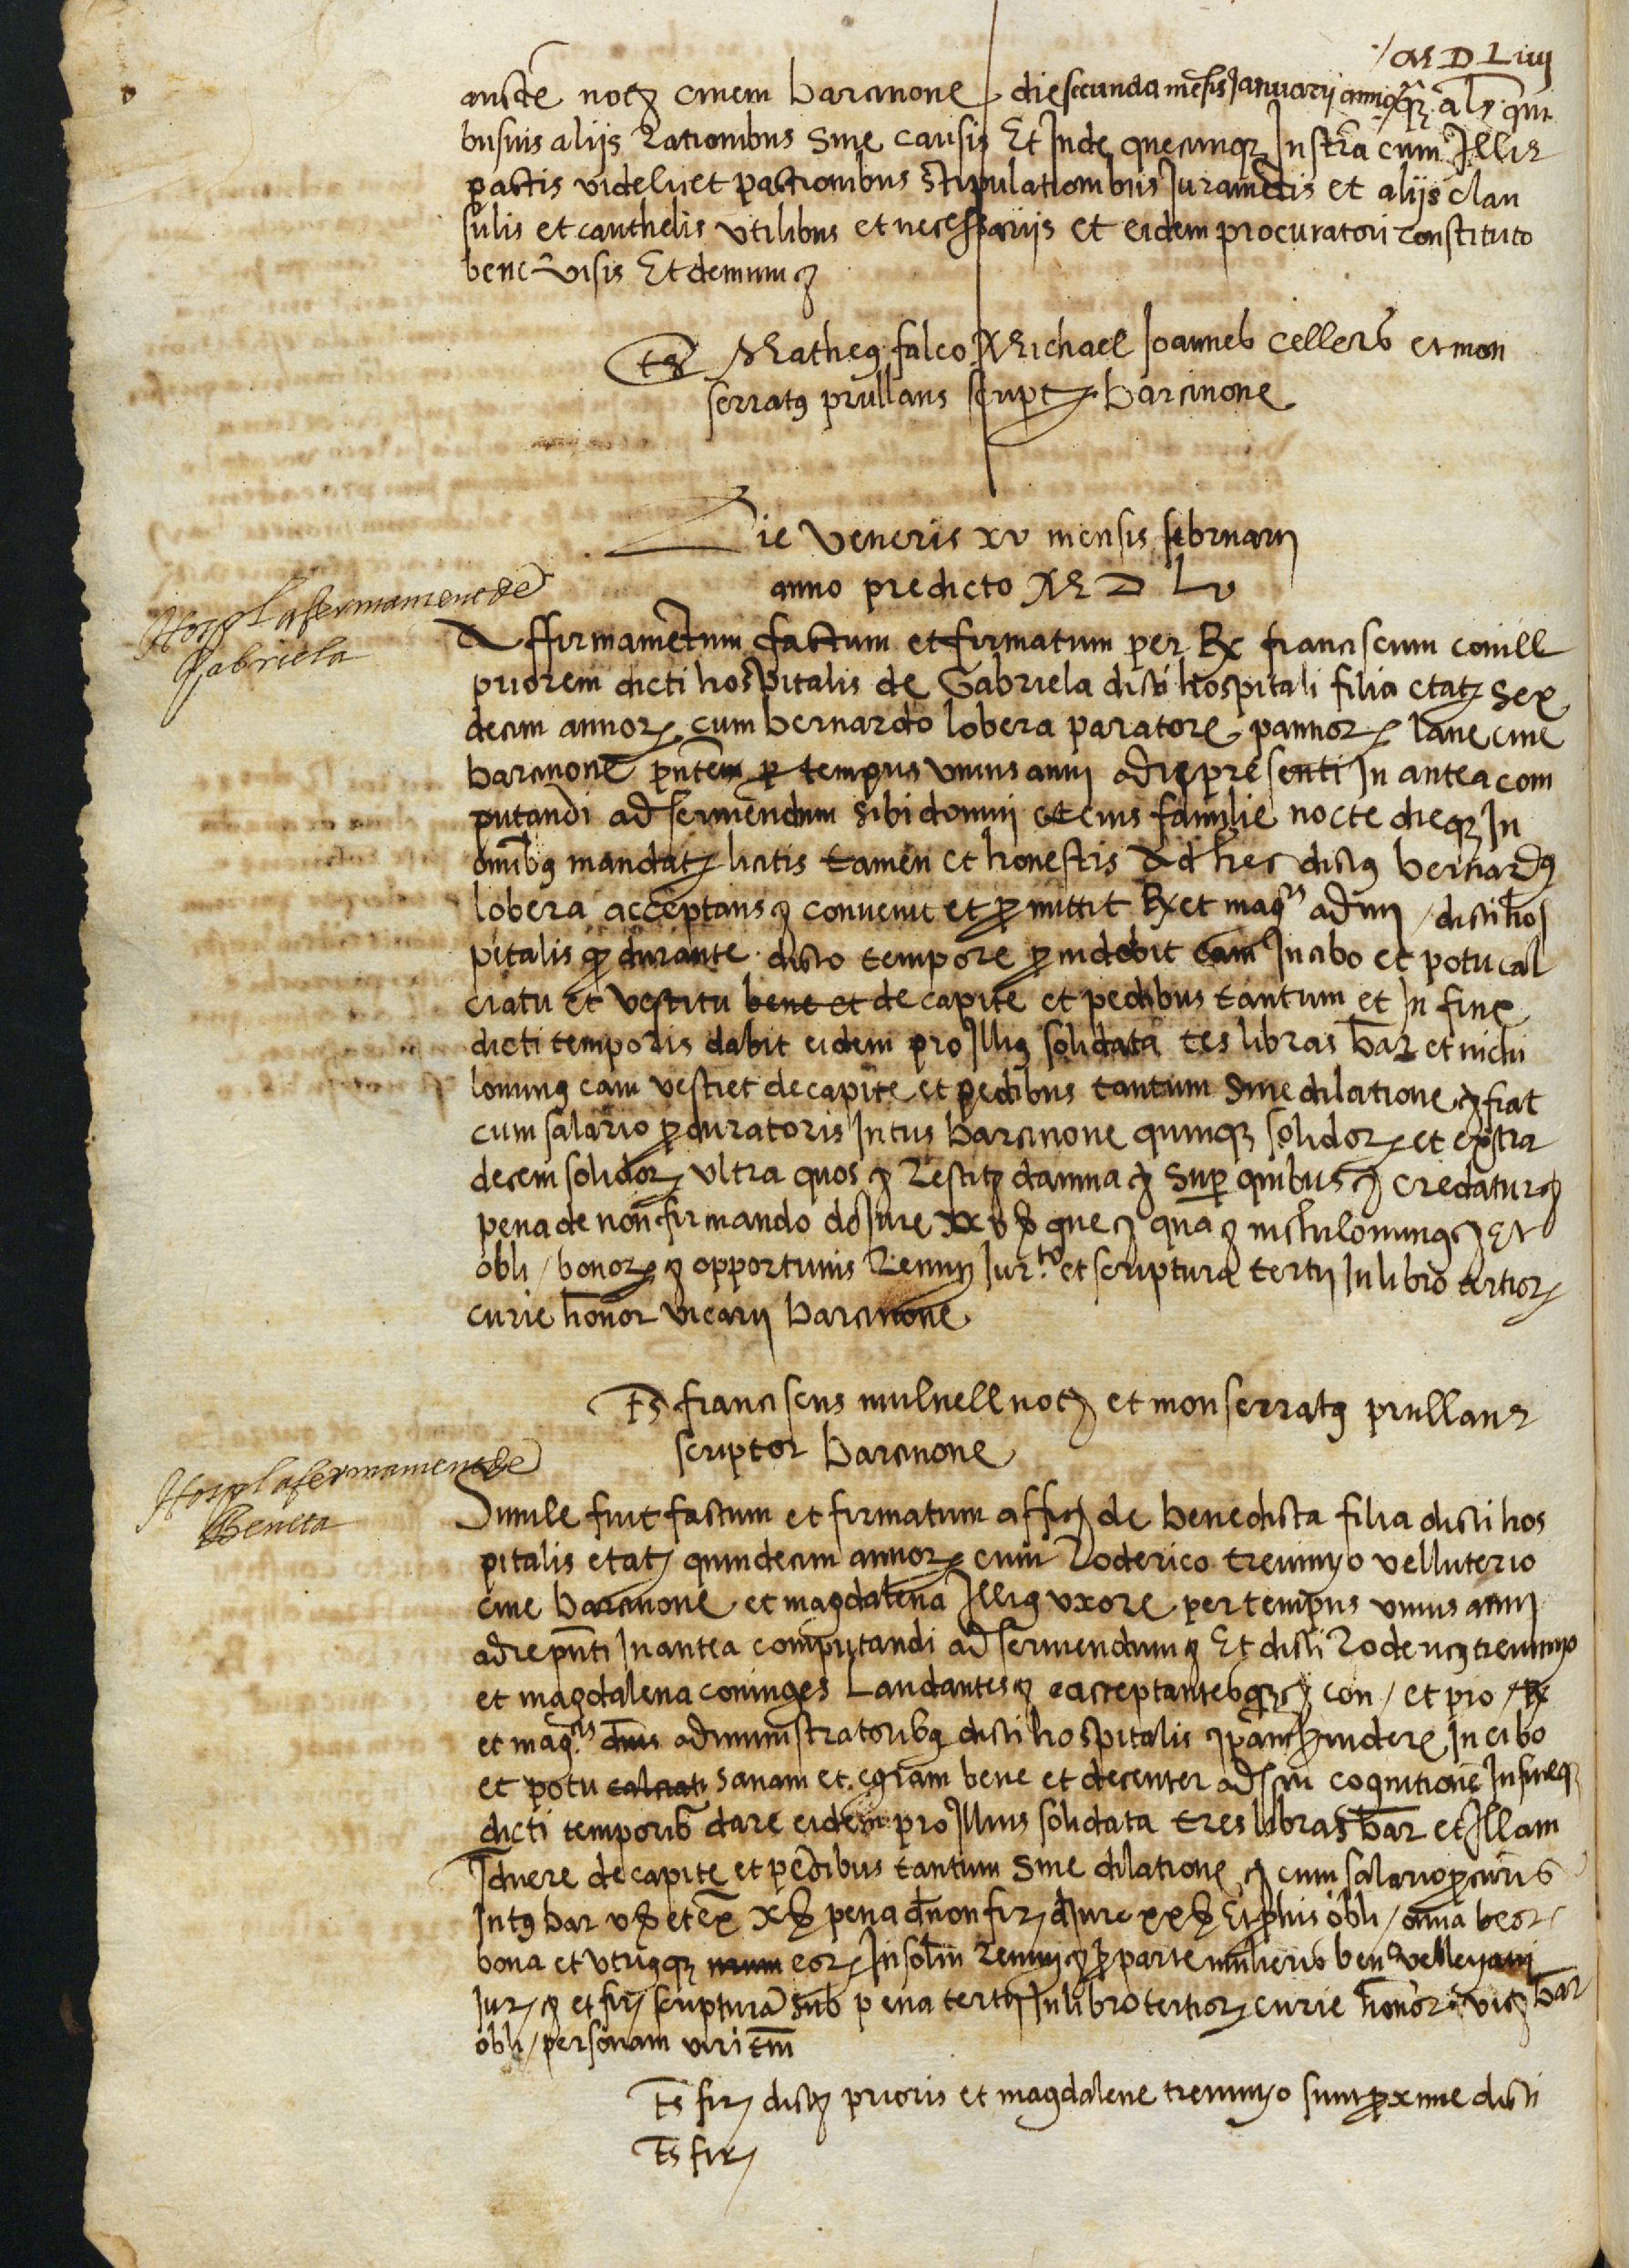 M D Liiij
aucte notz civem barcinone die secunda mensis Januarij anni als qui
busvis alijs rationibus sive causis Et Inde quecunqz Instra cum Illis
pactis videlicet pactionibus stipulationibus Juramentis et alijs clau
sulis et cauthelis utilibus et necessariis et eidem procuratori constituto
bene visis Et demum
ts Matheus falco Michael Joannes cellers et mon
serratus prullans script barcinone
Die veneris xv mensis februarij
anno predicto M D Lv
Hospl afermament de
Gabriela
Affirmamentum factum et firmatum per Rx franciscum conill
priorem dicti hospitalis de Gabriela dicti hospitali filia etatz sex
decim annorz cum bernardo lobera paratore pannorz lane cive
barcinone pntem per tempus unius anni a die presenti In antea com
putandi ad serviendum sibi domui et eius familie nocte dieqz In
omnibus mandatz licitis tamen et honestis Ad hec dictus bernardus
lobera acceptans convenit et promittit Rx et magcis admi / dicti hos
pitalis qd durante dicto tempore providebit eam In cibo et potu cal
ciatu et vestitu bene et de capite et pedibus tantum et In fine
dicti temporis dabit eidem pro Illius solidata tes libras bar et nichi
lominus eam vestiet de capite et pedibus tantum sine dilatione fiat
cum salario procuratoris Intus barcinone quinqz solidorz et extra
decem solidorz ultra quos restitz damna super quibus credatur
pena de non firmando de Jure xx s que qua nichilominus Et
obli / bonorz opportunis renun Jur.to et scriptura tertij In libro tertiorz
curie honor vicarij barcinone
ts franciscus mulnell notz et monserratus prullans
scriptor barcinone
Hospl afermament de
Beneta
Simile fuit factum et firmatum affirz de benedicta filia dicti hos
pitalis etatz quindecim annorz cum Roderico trevinyo velluterio
cive barcinone et magdalena Illius uxore per tempus unius anni
a die pnti In antea computandi ad serviendum Et dicti Rodericus trevinyo
et magdalena coniuges Laudantes acceptantesqz con / et pro / Rx
et magcis dnis administratoribus dicti hospitalis providere In cibo
et potu calciatu sanam et egram bene et decenter ad sui cognitione In fineqz
dicti temporis dare eidem pro Illius solidata tres libras bar et Illam
Iduere de capite et pedibus tantum sine dilatione cum salario procuris
Intus bar v s et ex x s pena de non firz de Jure xx s Et phis obli / omia beor
bona et utriusqz eorz Insolm renun pro parte mulieris ben velleyani
Jurz et firz scriptura sub pena tertij In libro tertiorz curie honor vicz bar
obli / personam viri tm
Ts firz dictz prioris et magdalene trevinyo sunt proxime dicti
Ts firz